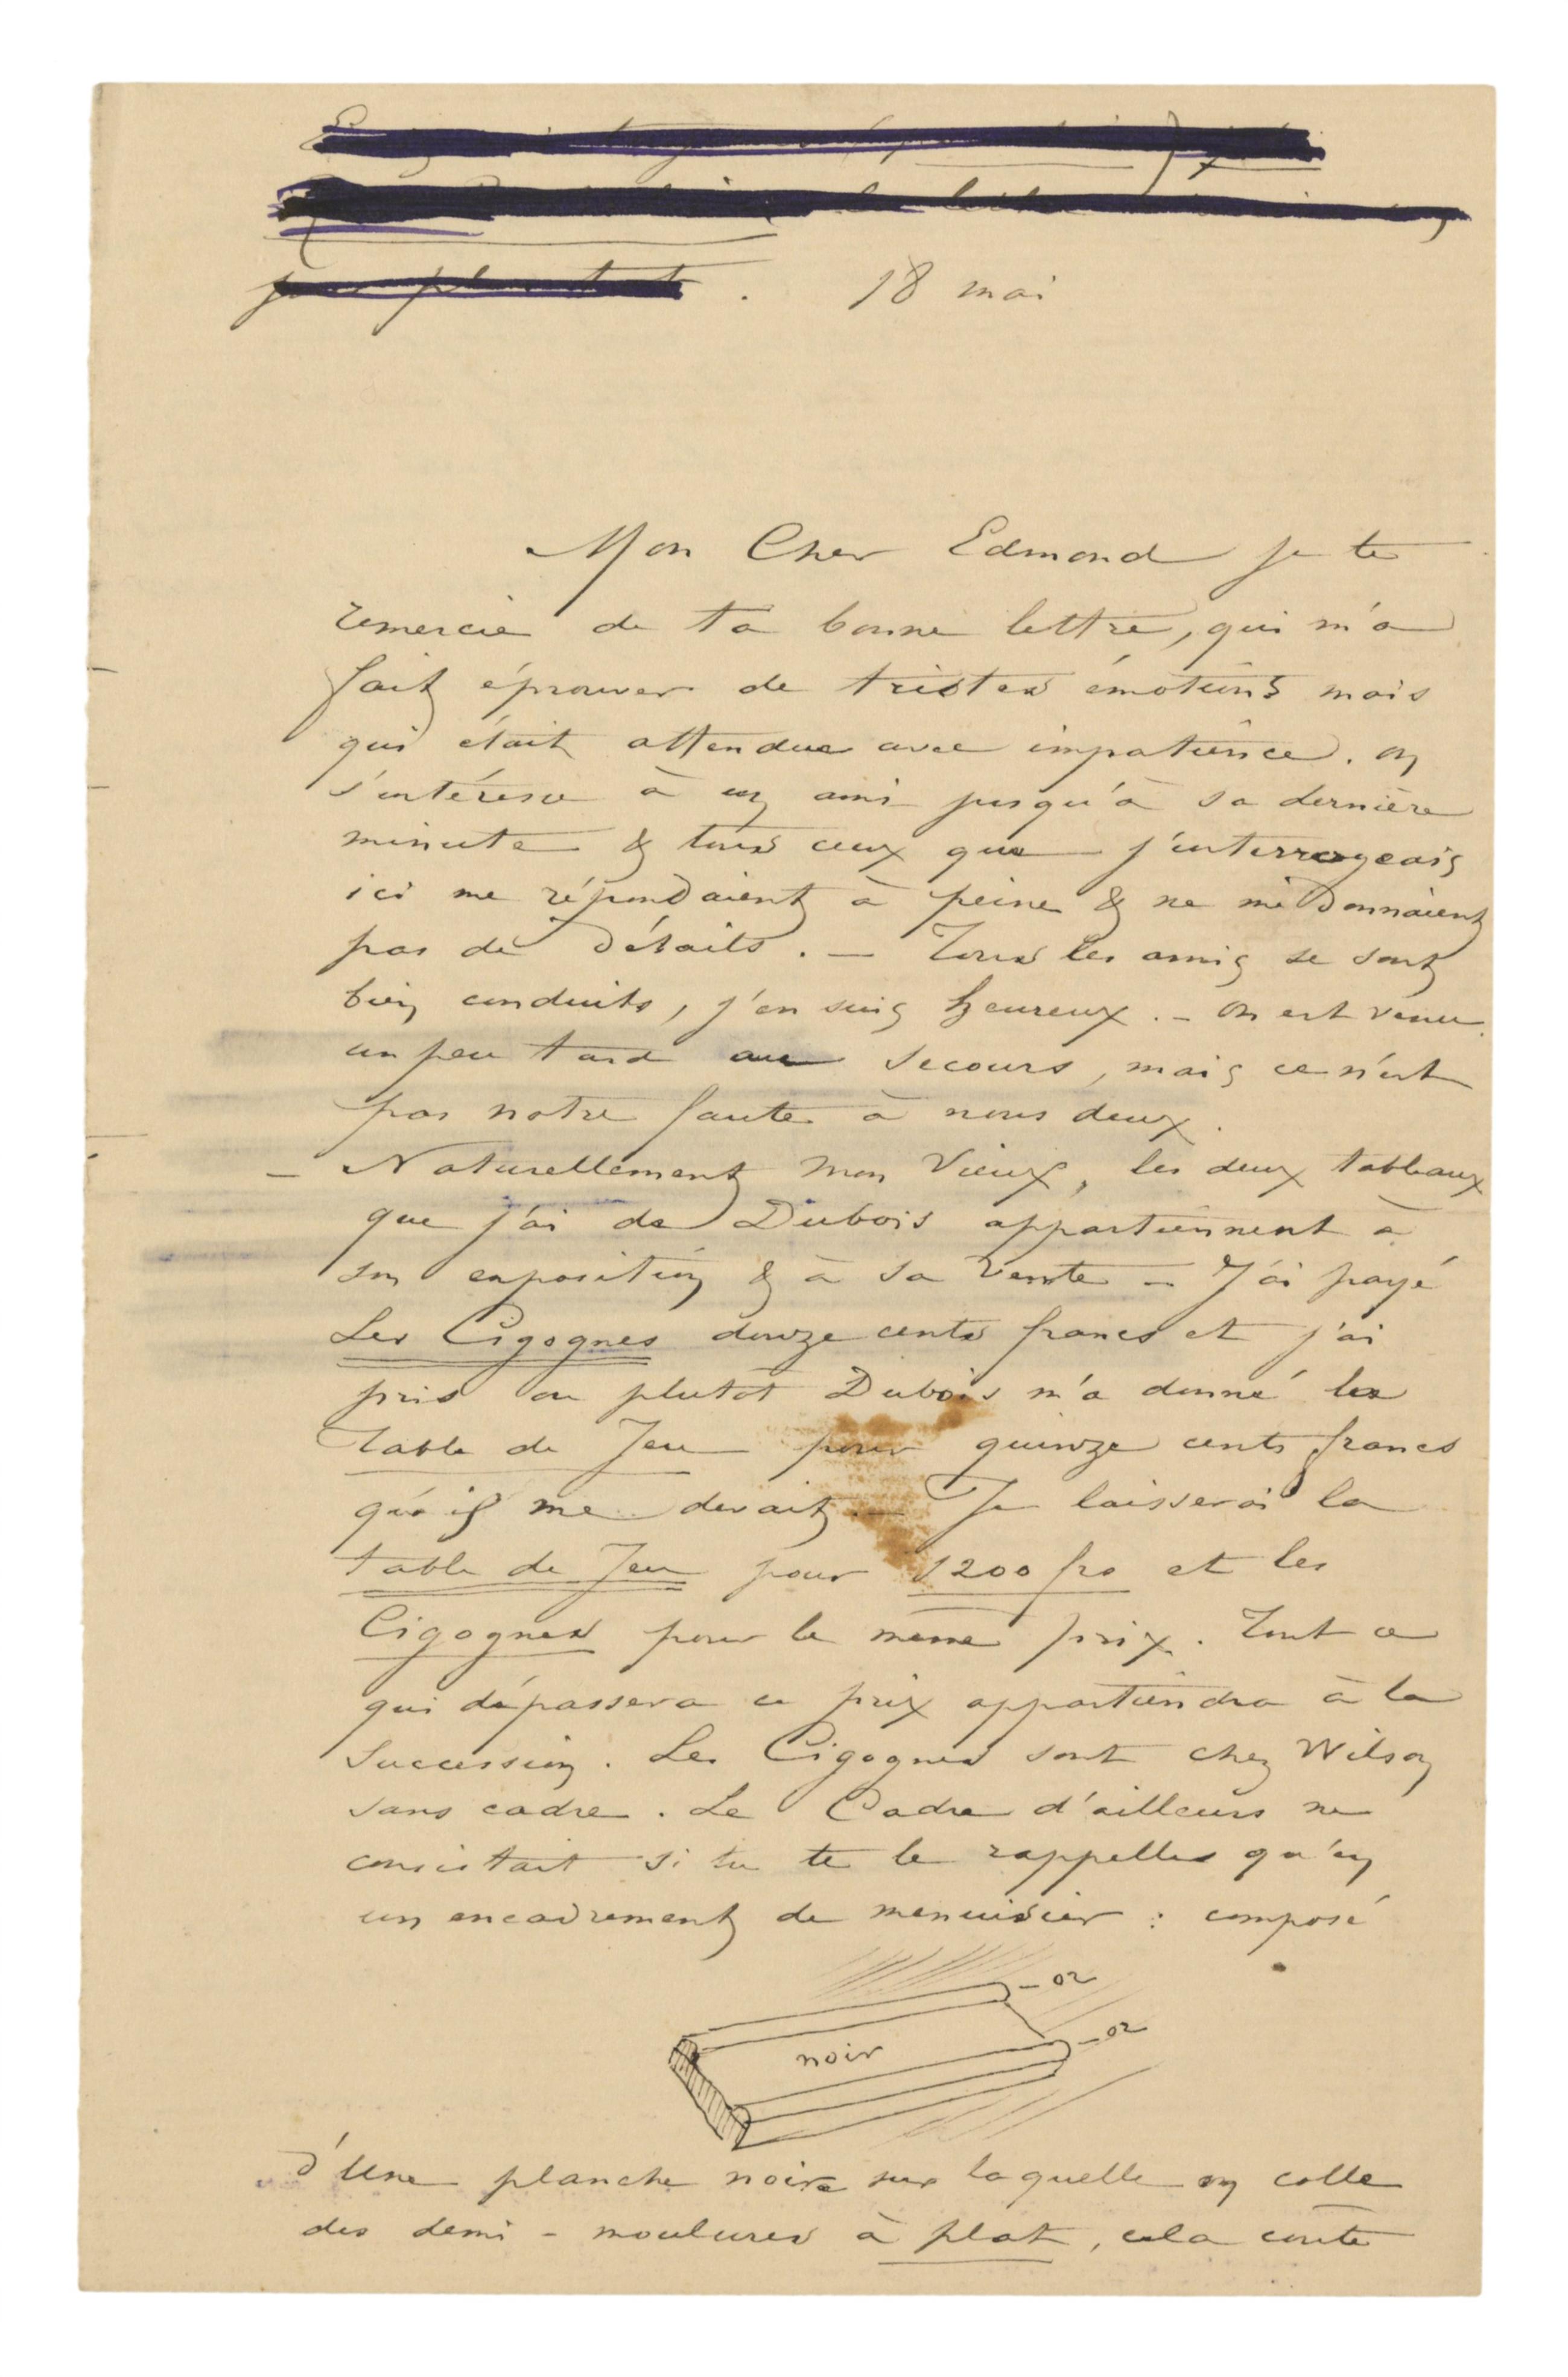 18 mai
Mon Cher Edmond je te
remercie de ta bonne lettre, qui m'a
fait éprouver de tristes émotions mais
qui était attendue avec impatience. on
s'intéresse à un ami jusqu'à sa dernière
minute & tous ceux que j'interrogeais
ici me répondaient à peine & ne me donnaient
pas de détails. — Tous les amis se sont
bien conduits, j'en suis heureux. — On est venu
un peu tard au secours, mais ce n'est
pas notre faute à nous deux.
— Naturellement mon Vieux, les deux tableaux
que j'ai de Dubois appartiennent à
son exposition & à sa vente — J'ai payé
Les Cigognes douze cents francs et j'ai
pris ou plutôt Dubois m'a donné la
Table de Jeu pour quinze cents francs
qu'il me devait — Je laisserai la
table de Jeu pour 1200 frs et les
Cigognes pour le même prix. Tout ce
qui dépassera ce prix appartiendra à la
Succession. Les Cigognes sont chez Wilson
sans cadre. Le Cadre d'ailleurs ne
consistait si tu te le rappelles qu'en
un encadrement de menuisier : composé
— or
— or
noir
d'Une planche noire sur laquelle on colle
des demi-moulures à plat, cela coûte